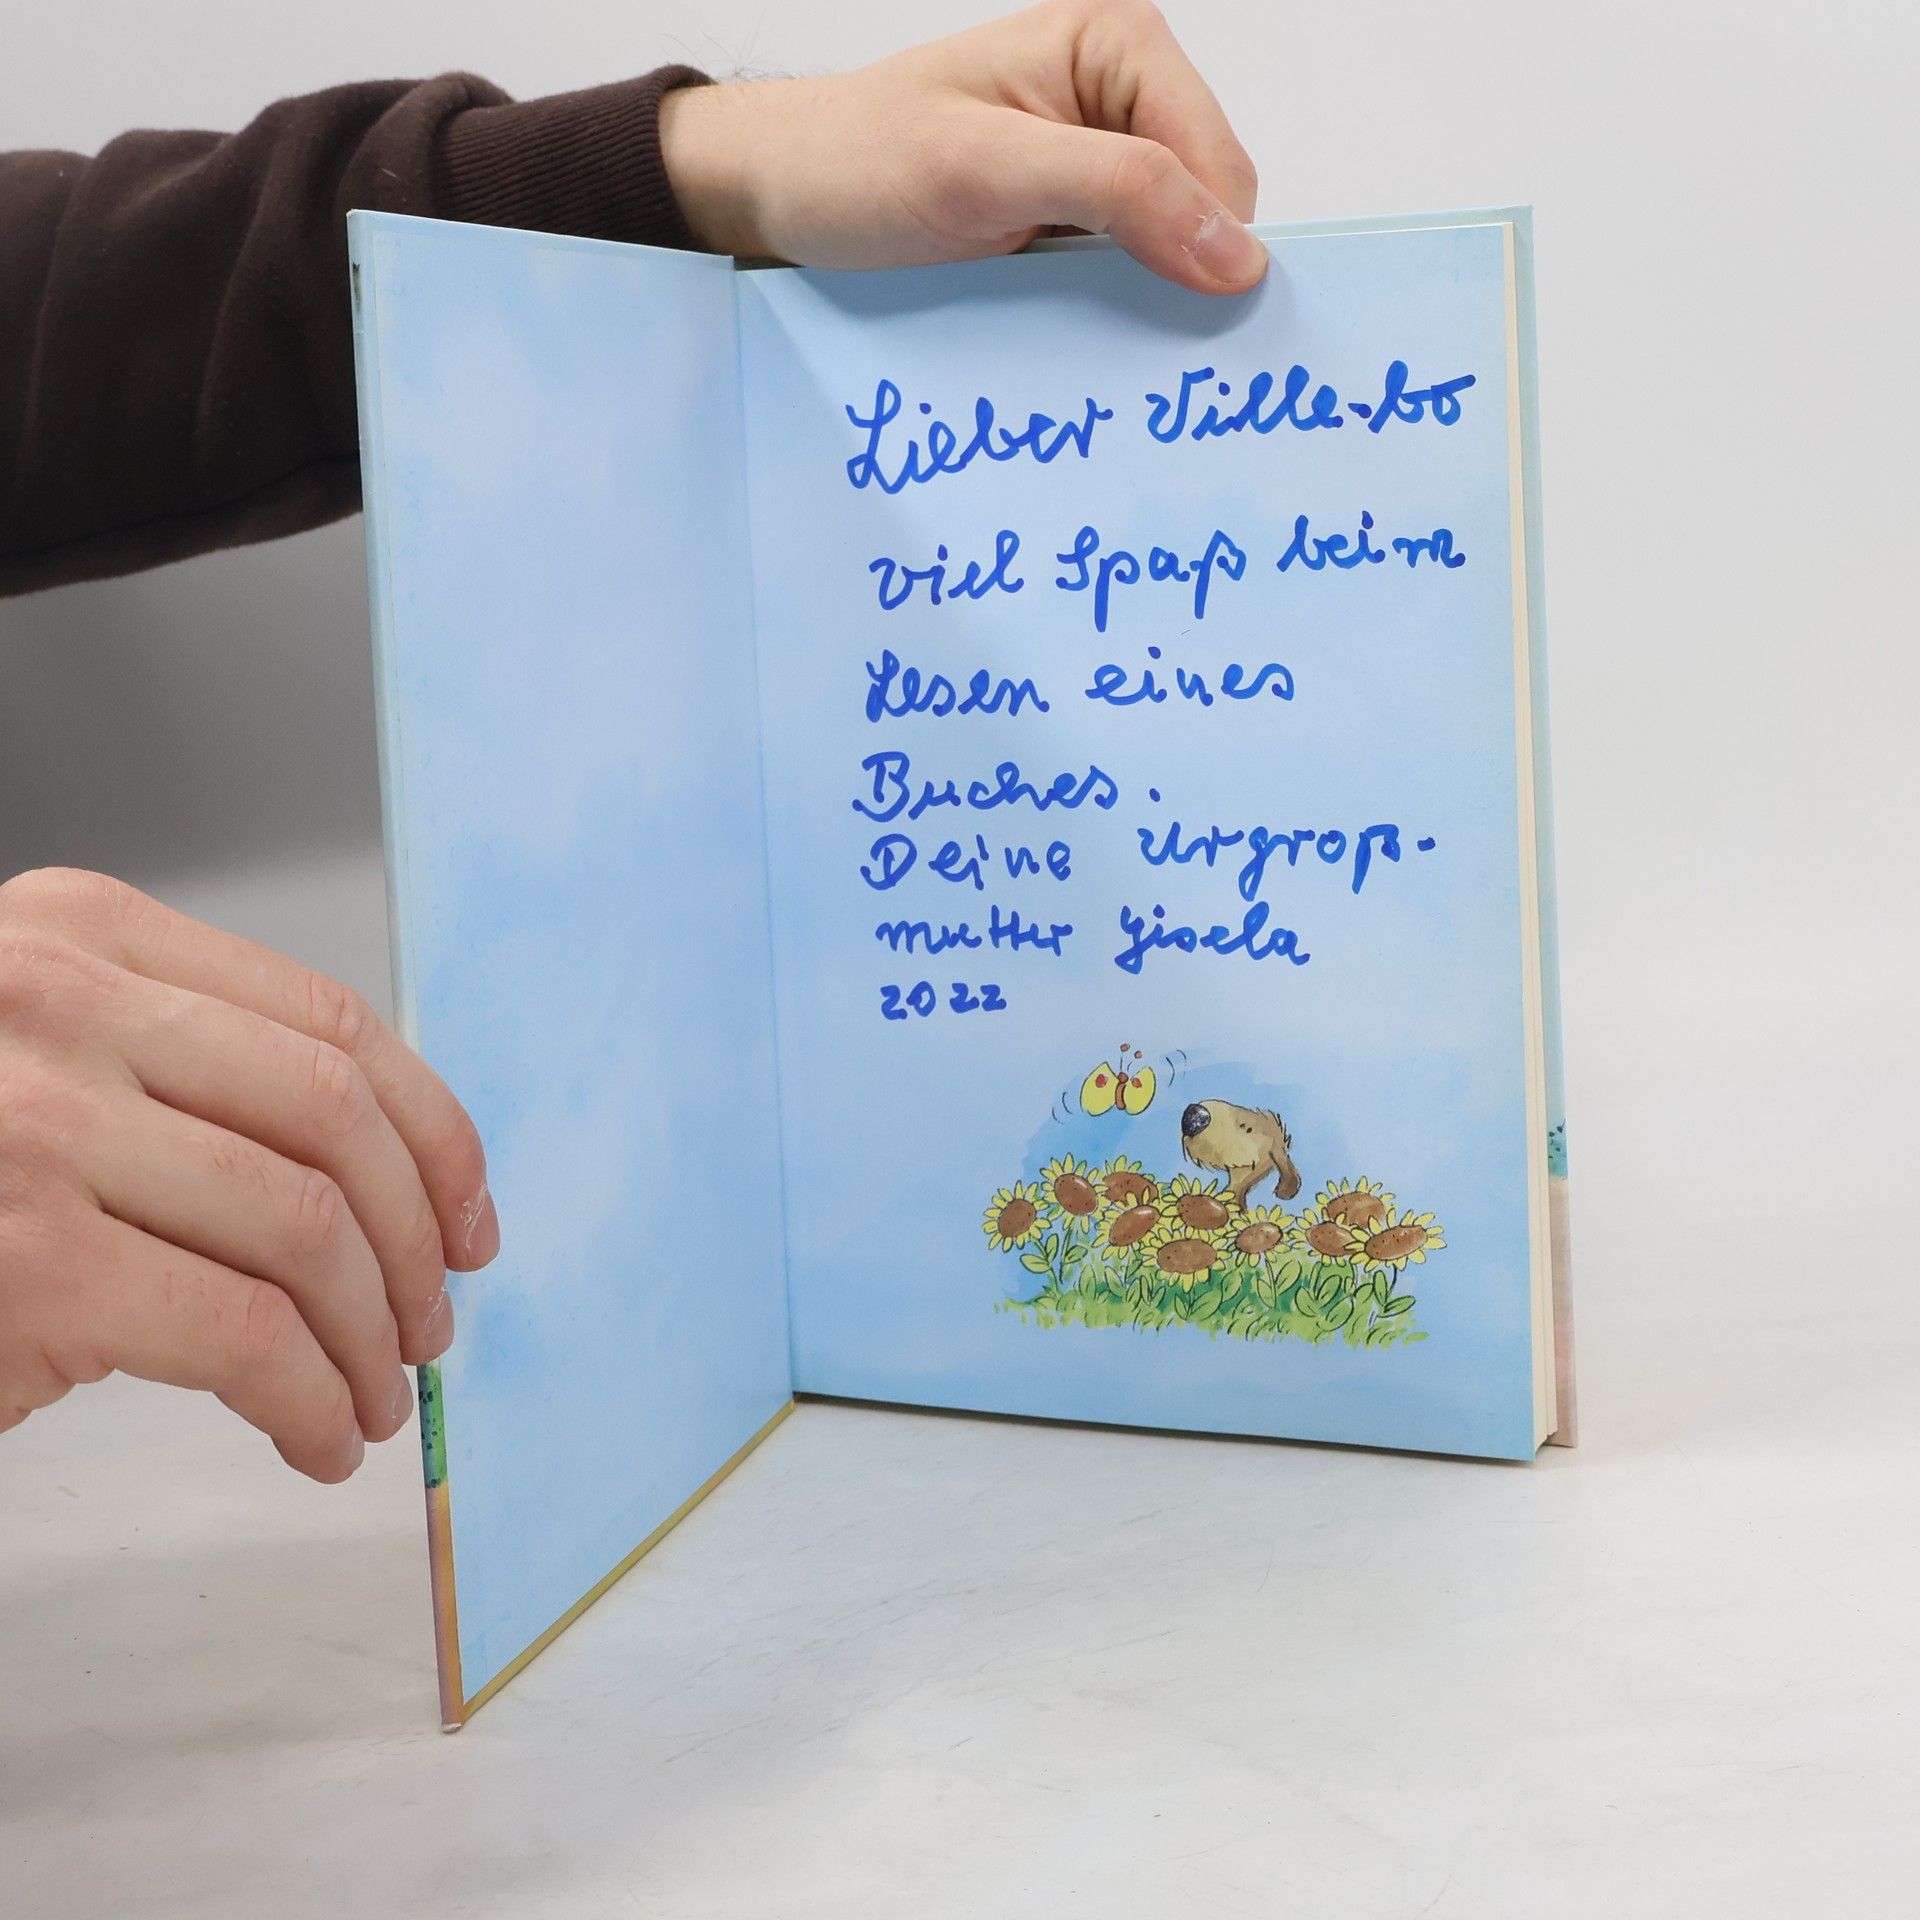 Lieber Ville-bo
viel Spaß beim
Lesen eines
Buches.
Deine Urgroß-
mutter Gisela
2022